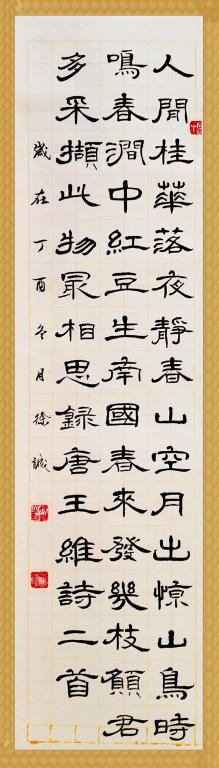 人閒桂華落夜靜春山空月出惊山鳥時
鳴春澗中紅豆生南國春來發幾枝願君
多采擷此物最相思錄唐王維詩二首
歲在丁酉冬月徐誠